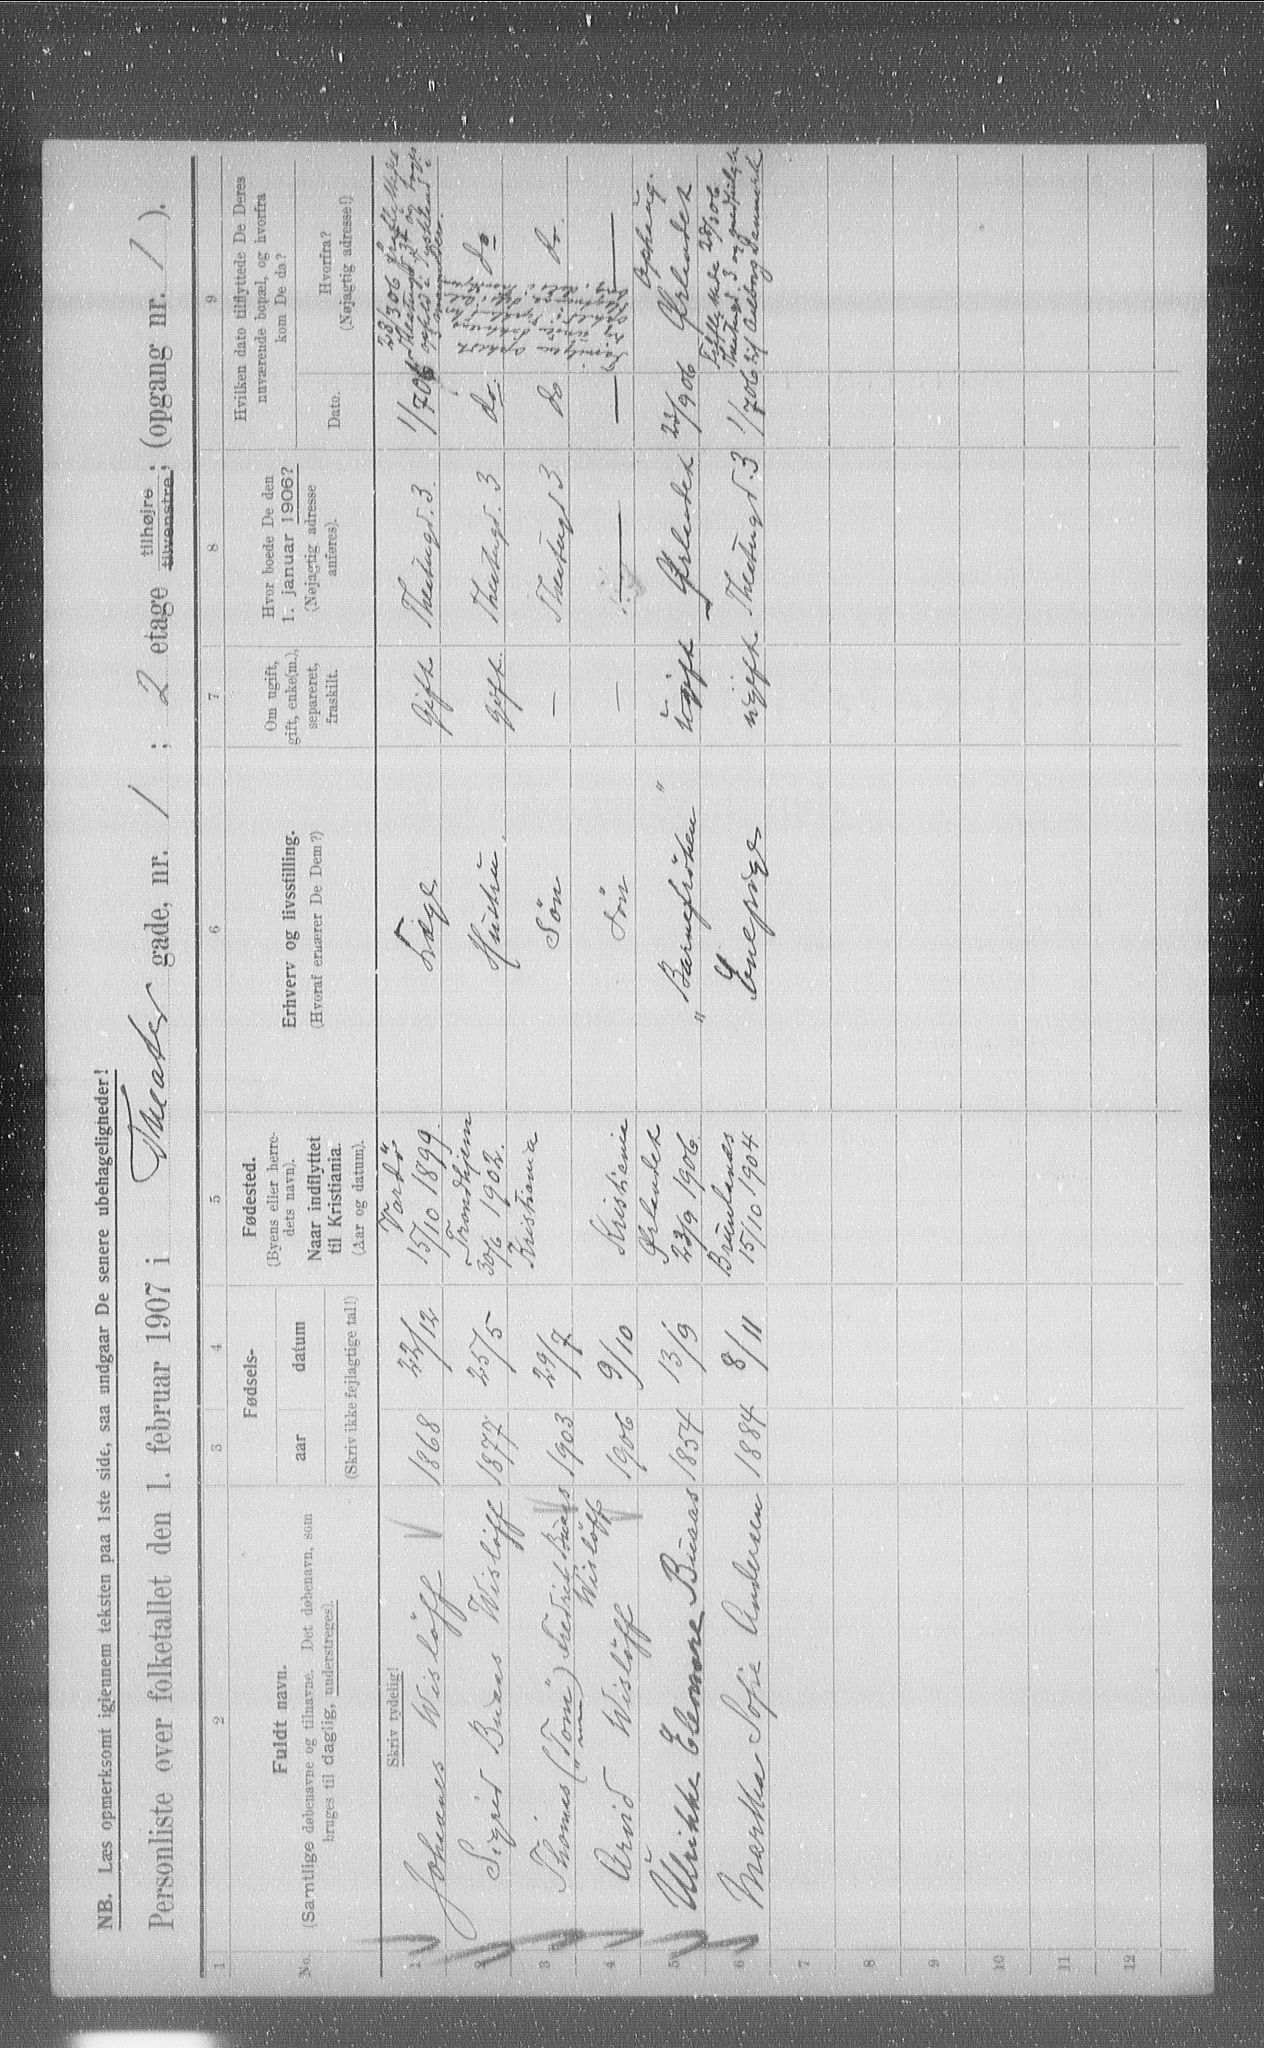 NB. Læs opmerksomt igjennem teksten paa 1ste side, saa undgaar De senere ubehageligheder!
Personliste over folketallet den 1. februar 1907 i Theater gade, nr. 1 ; 2 etage tilhøjre tilvenstre; (opgang nr. 1 ).
1 2 3 4 5 6 7 8 9
No.
Fuldt navn.
(Samtlige døbenavne og tilnavne. Det døbenavn, som
bruges til daglig, understreges).
Fødsels-
aar datum
(Skriv ikke fejlagtige tal!)
Fødested.
(Byens eller herre-
dets navn).
Naar indflyttet
til Kristiania.
(Aar og datum).
Erhverv og livsstilling.
(Hvoraf ernærer De Dem?)
Om ugift,
gift, enke(m.),
separeret,
fraskilt.
Hvor boede De den
1. januar 1906?
(Nøjagtig adresse
anføres).
Hvilken dato tilflyttede De Deres
nuværende bopæl, og hvorfra
kom De da?
Dato.
Hvorfra?
(Nøjagtig adresse!)
Skriv tydelig!
1 Johannes Wislöff 1868 22/12 Vardö 15/10 1899. Læge Gift Theatergd. 3. 1/7 06
2 Sigrid Buaas Wislöff 1877 25/5 Trondhjem 30/6 1902. Hustru Gift. Theatergd. 3 do. do
3 Thomas ("Tom") Fredrik Buaas Wislöff 1903 29/7 Kristiania Sön — Theatergd 3 do do.
4 Arvid Wislöff 1906 9/10 Kristiania Sön — — — —
5 Ulrikke Elenore Buaas 1854 13/9 Ørlandet 23/9 1906. "Barnefröken" ugift Ørlandet 23/9 06 Ophaug. Ørlandet
6 Martha Sofie Andersen 1884 8/11 Brunlanæs 15/10 1904 Enepige ugift Theatergd. 3 1/7 06
7
8
9
10
11
12